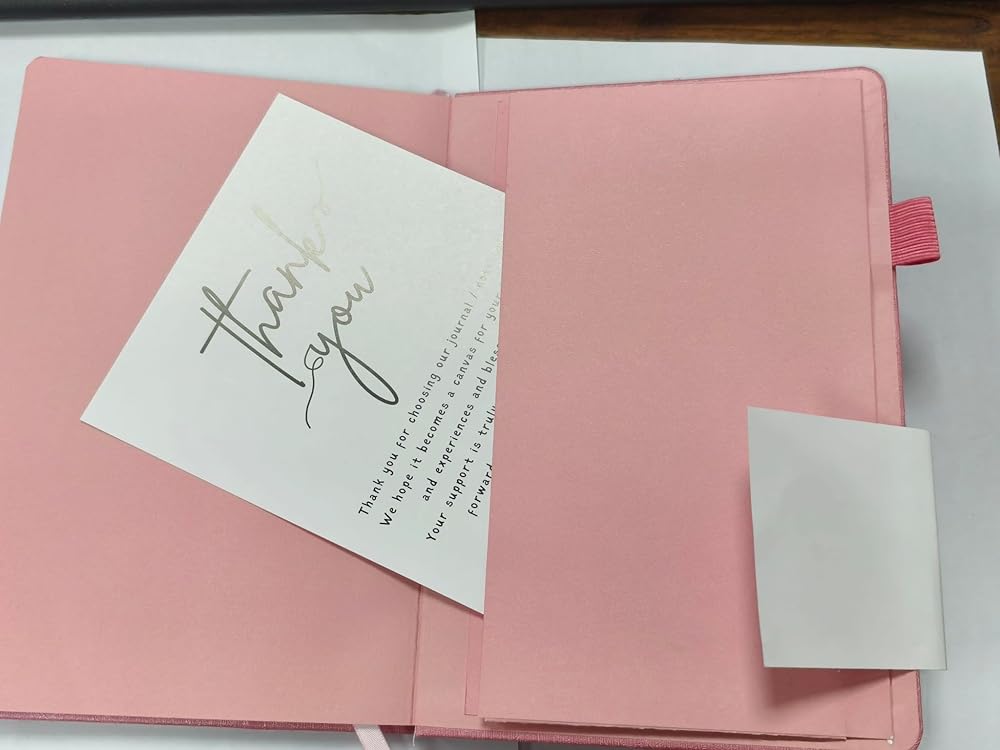 Thank
you
Thank you for choosing our journal /
We hope it becomes a canvas for your
and experiences and
Your support is truly
forward